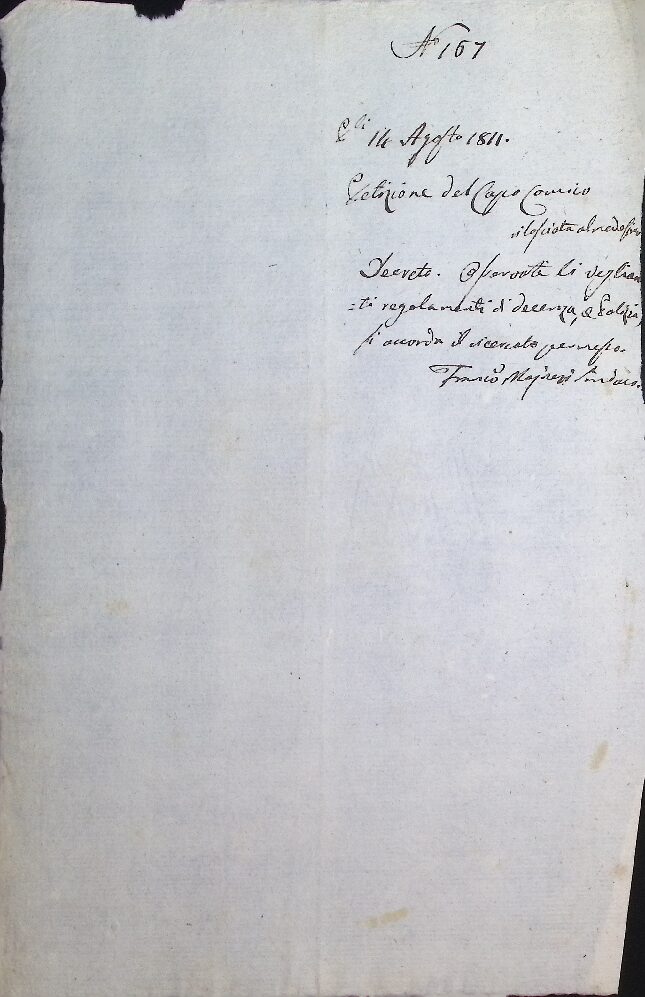 N° 167
li 14 Agosto 1811.
Petizione del Capo Comico
rilasciata al medesimo
Decreto. Osservati li veglian
=ti regolamenti di decenza, e Polizia,
si accorda il ricercato permesso.
Franc° Sindaco.